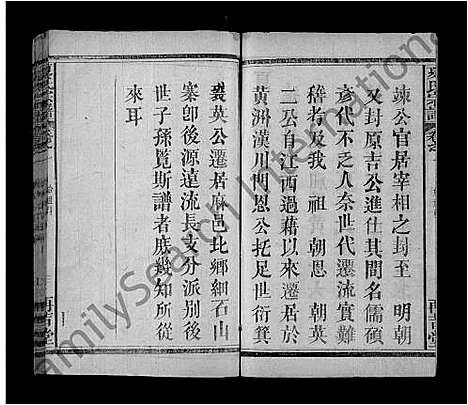 諫公官居宰相之封至　明朝
又封原吉公進仕其間名儒碩
彥代不乏人奈世代遷流實難
稽考及我　祖　朝恩　朝英
二公自江西過藉以來遷居於
黃洲漢川門恩公托足世衍箕
裘英公遷居麻邑北鄉細石山
寨卽後源遠流長支分派別後
世子孫覧斯譜者庶幾知所從
來耳
FamilySearch International